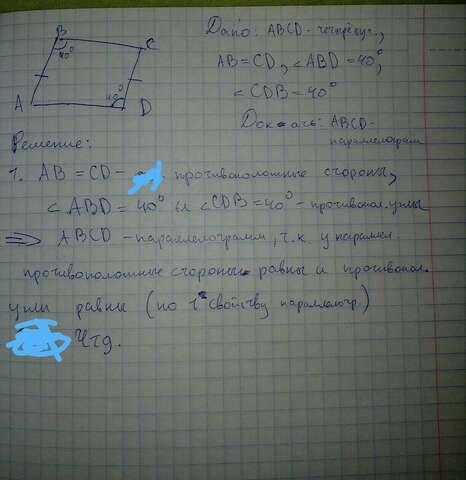 B
40°
C
A
40°
D
Дано: ABCD - четырёхуг.,
AB = CD, < ABD = 40°,
< CDB = 40°
Док-ать: ABCD -
параллелограм
Решение:
1. AB = CD - противоположные стороны,
< ABD = 40° и < CDB = 40° - противопол. углы
=> ABCD - параллелограмм, т.к. у паралл.
противоположные стороны равны и противопол.
углы равны (по 1 свойству параллелогр)
Чтд.